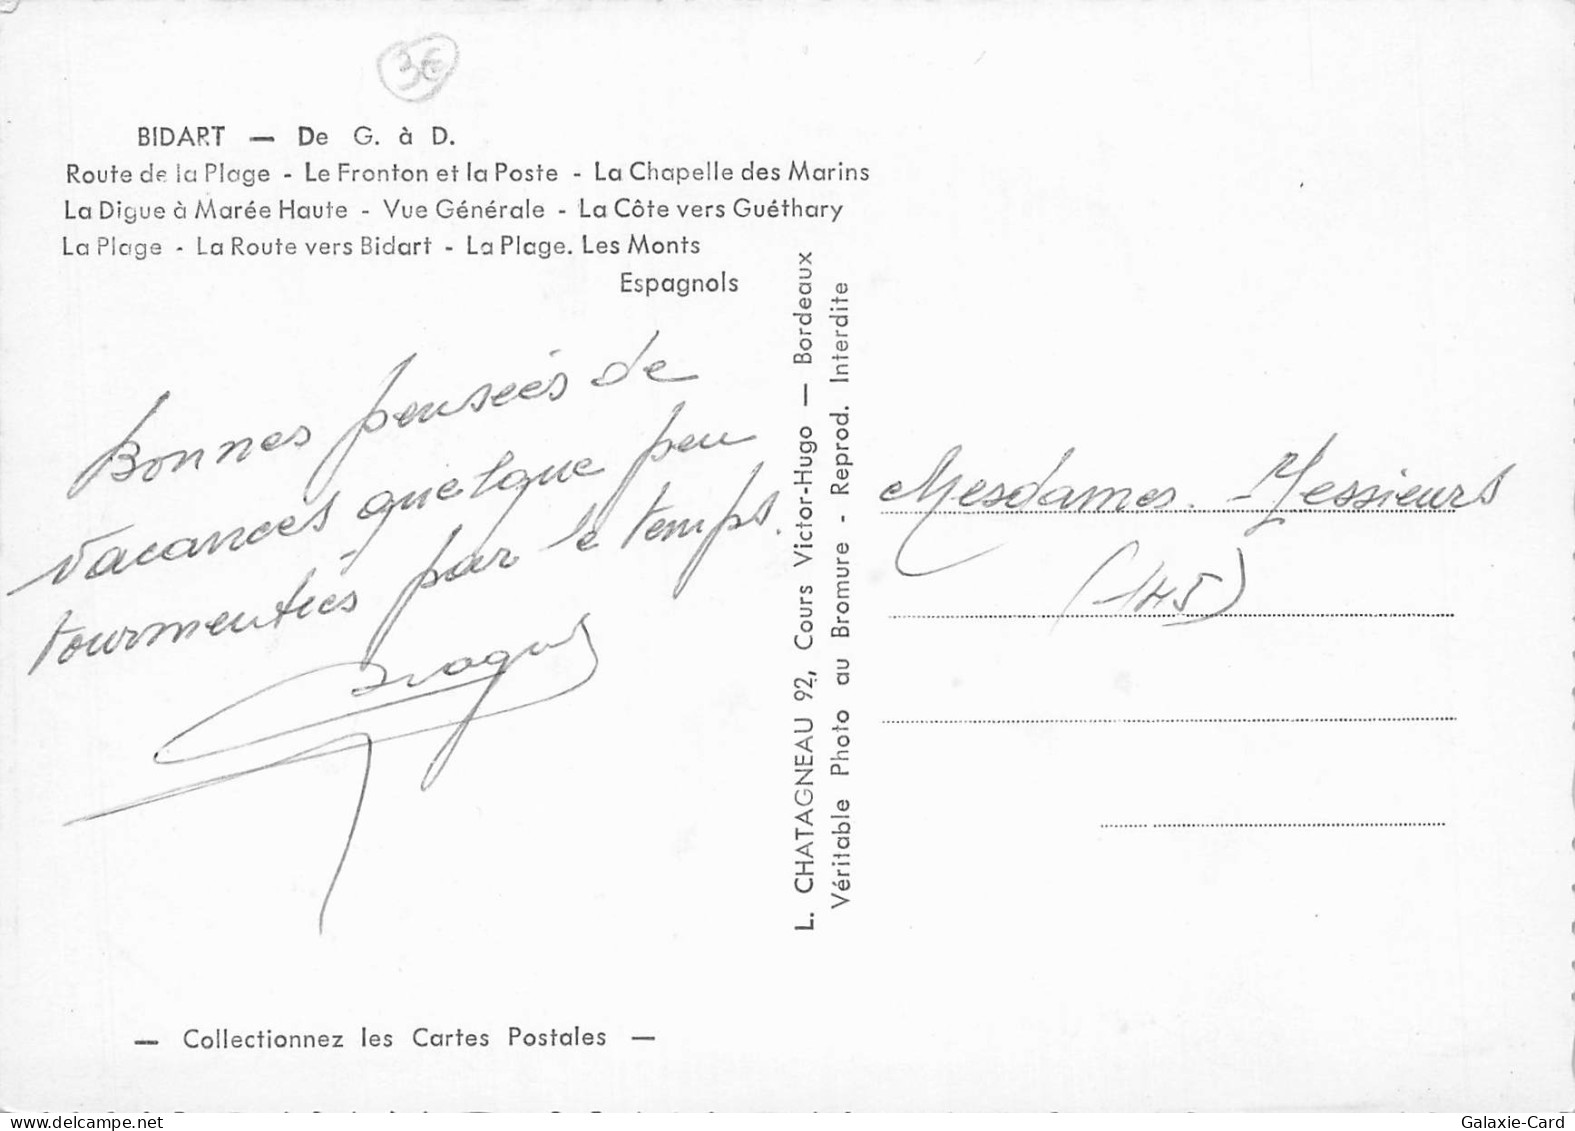 3€
BIDART — De G. à D.
Route de la Plage - Le Fronton et la Poste - La Chapelle des Marins
La Digue à Marée Haute - Vue Générale - La Côte vers Guéthary
La Plage - La Route vers Bidart - La Plage. Les Monts
Espagnols
Bonnes pensées de
vacances quelque peu
tourmentées par le temps.
L. CHATAGNEAU 92, Cours Victor-Hugo — Bordeaux
Véritable Photo au Bromure - Reprod. Interdite
Mesdames - Messieurs
(145)
— Collectionnez les Cartes Postales —
Galaxie-Card